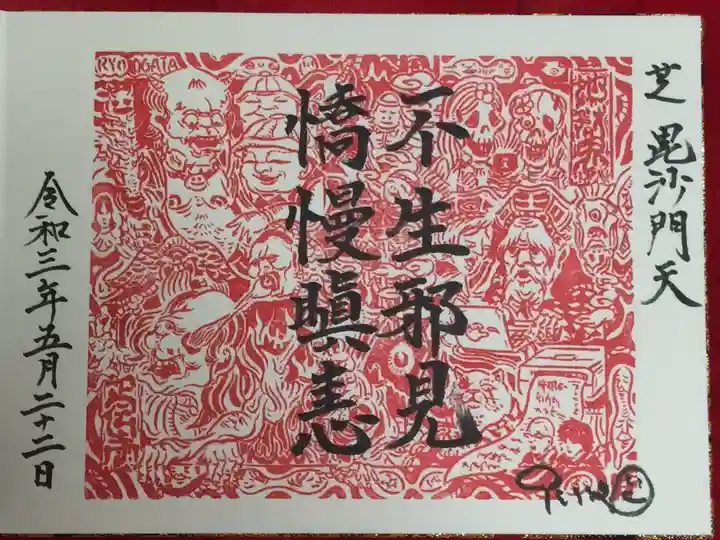 芝 毘沙門天
不生邪見
憍慢瞋恚
令和三年五月二十二日
RYO OGATA